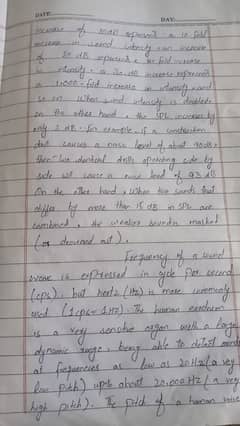 DATE: DAY:
increase of 10dB represent a 10 fold
increase in sound intensity can increase
of 20 dB represent a 100 fold increase
in intensity, a 30 dB increase represent
a 1,000-fold increase in intensity and
so on. When sound intensity is doubled
on the other hand, the SPL increases by
only 3 dB. For example, if a construction
drill causes a noise level of about 90dB,
then two identical drills operating side by
side will cause a noise level of 93 dB
On the other hand, when two sounds that
differ by more than 15 dB in SPL are
combined, the weaker sound is masked
(or drowned out).
Frequency of a sound
wave is expressed in cycle per second
(cps), but hertz (Hz) is more commonly
used (1 cps = 1 Hz). The human eardrum
is a very sensitive organ with a large
dynamic range, being able to detect sounds
at frequencies as low as 20 Hz (a very
low pitch) upto about 20,000 Hz (a very
high pitch). The pitch of a human voice